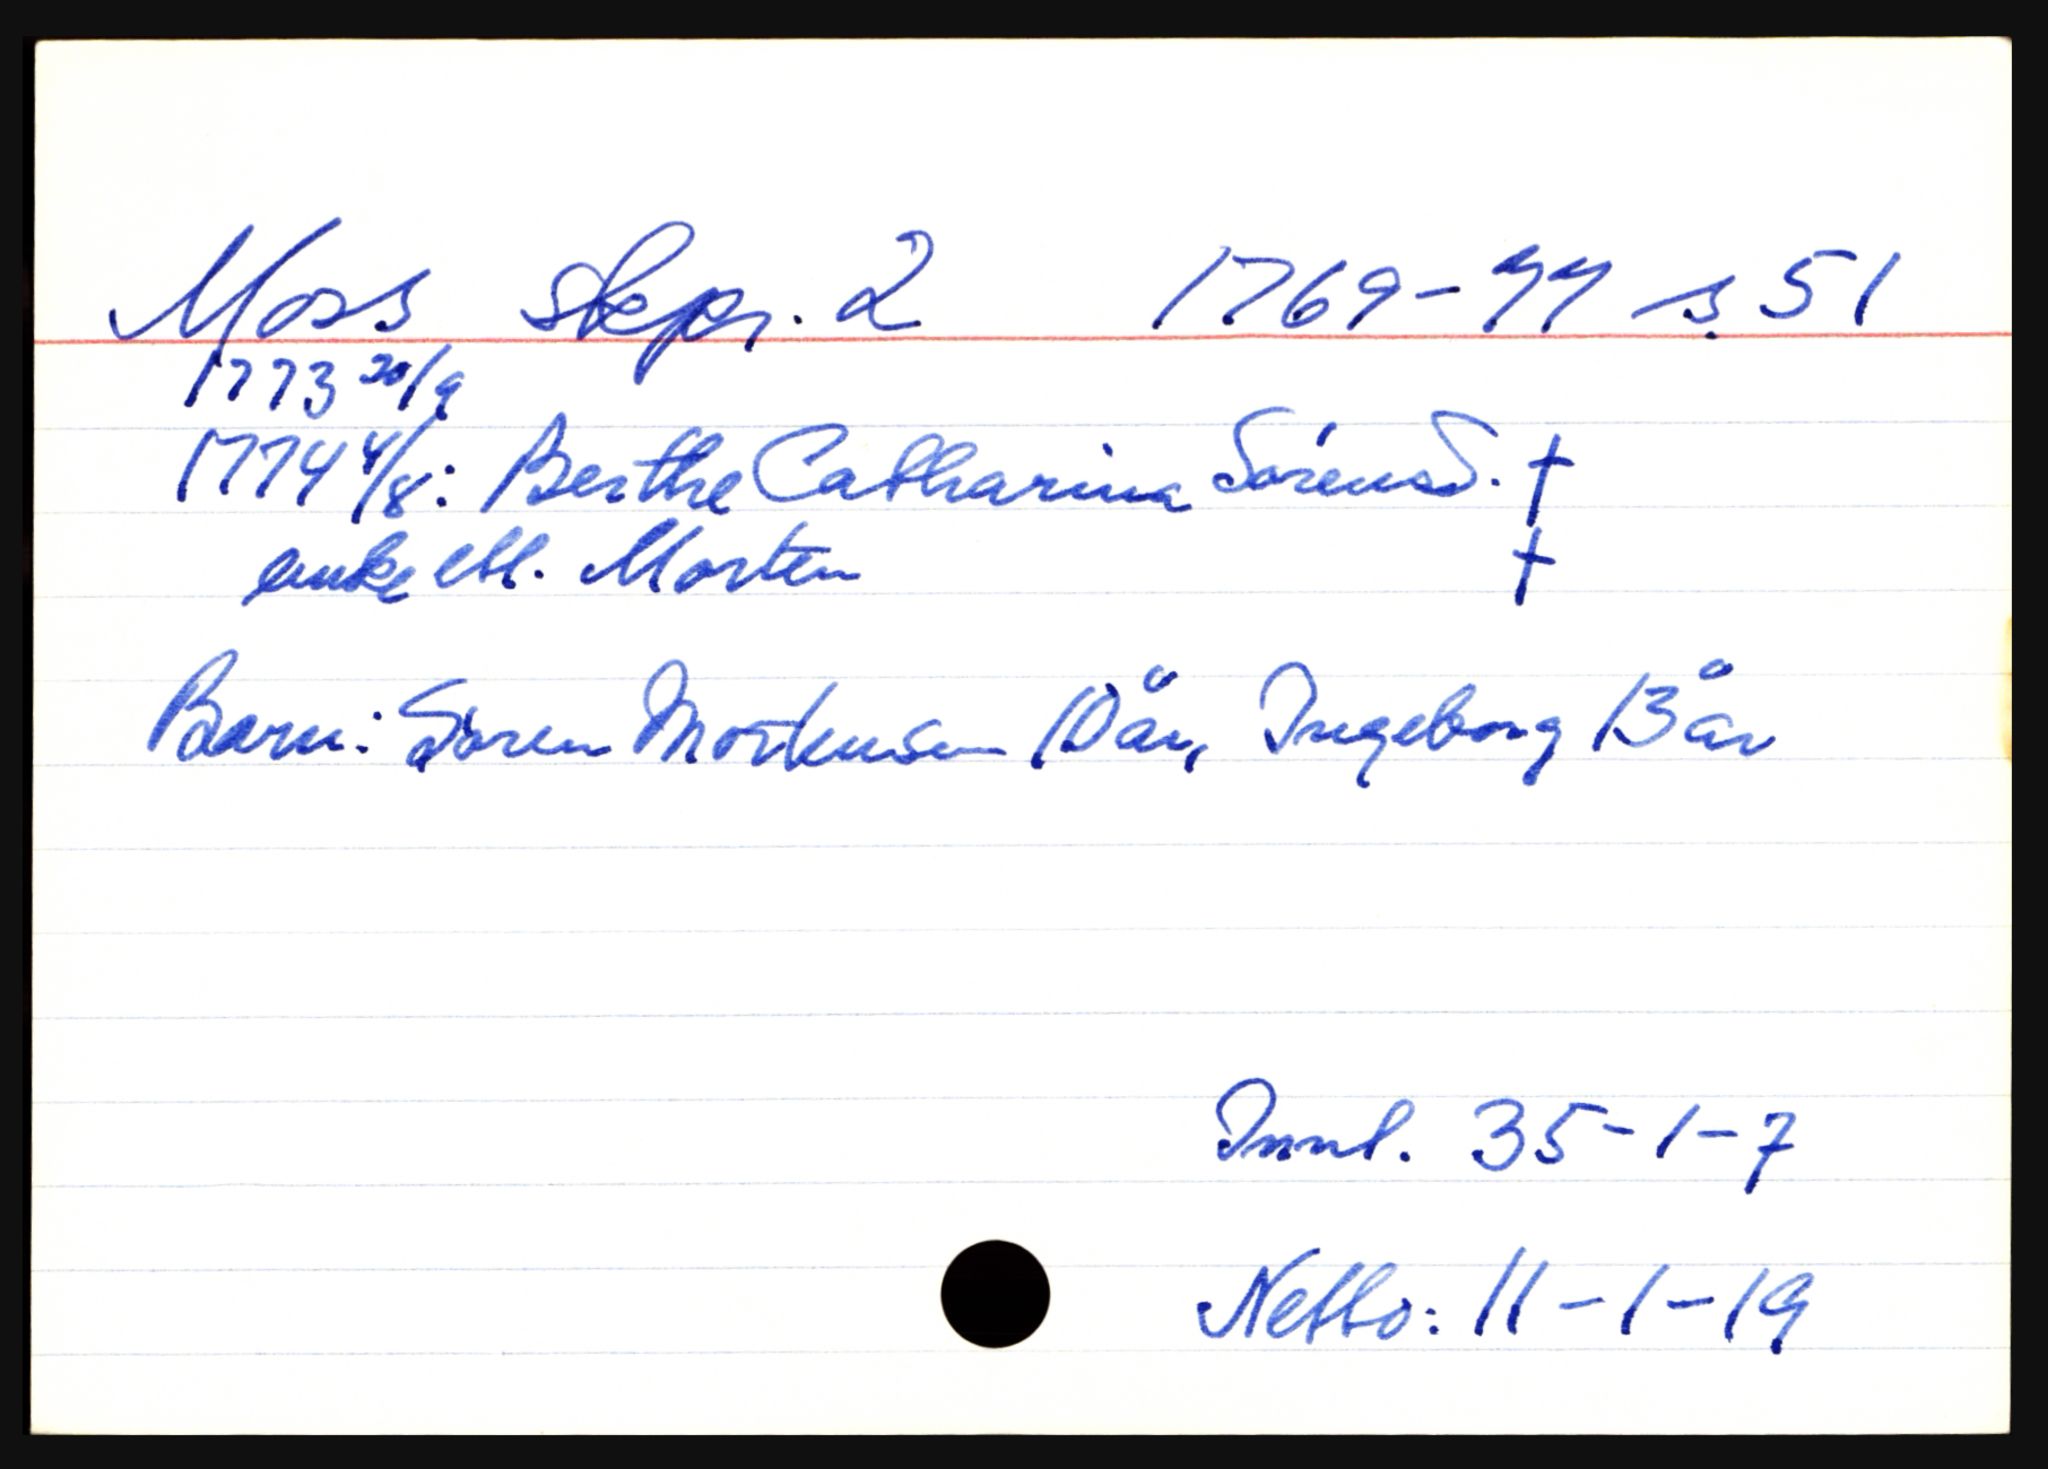 Moss skpr. 2 1769-99 s 51
1773 20/9
1774 4/8: Berthe Catharina Sörensd. †
enke ett. Morten †
Barn: Søren Mortensen 10 år, Ingeborg 13 år
Innt. 35-1-7
Netto: 11-1-19